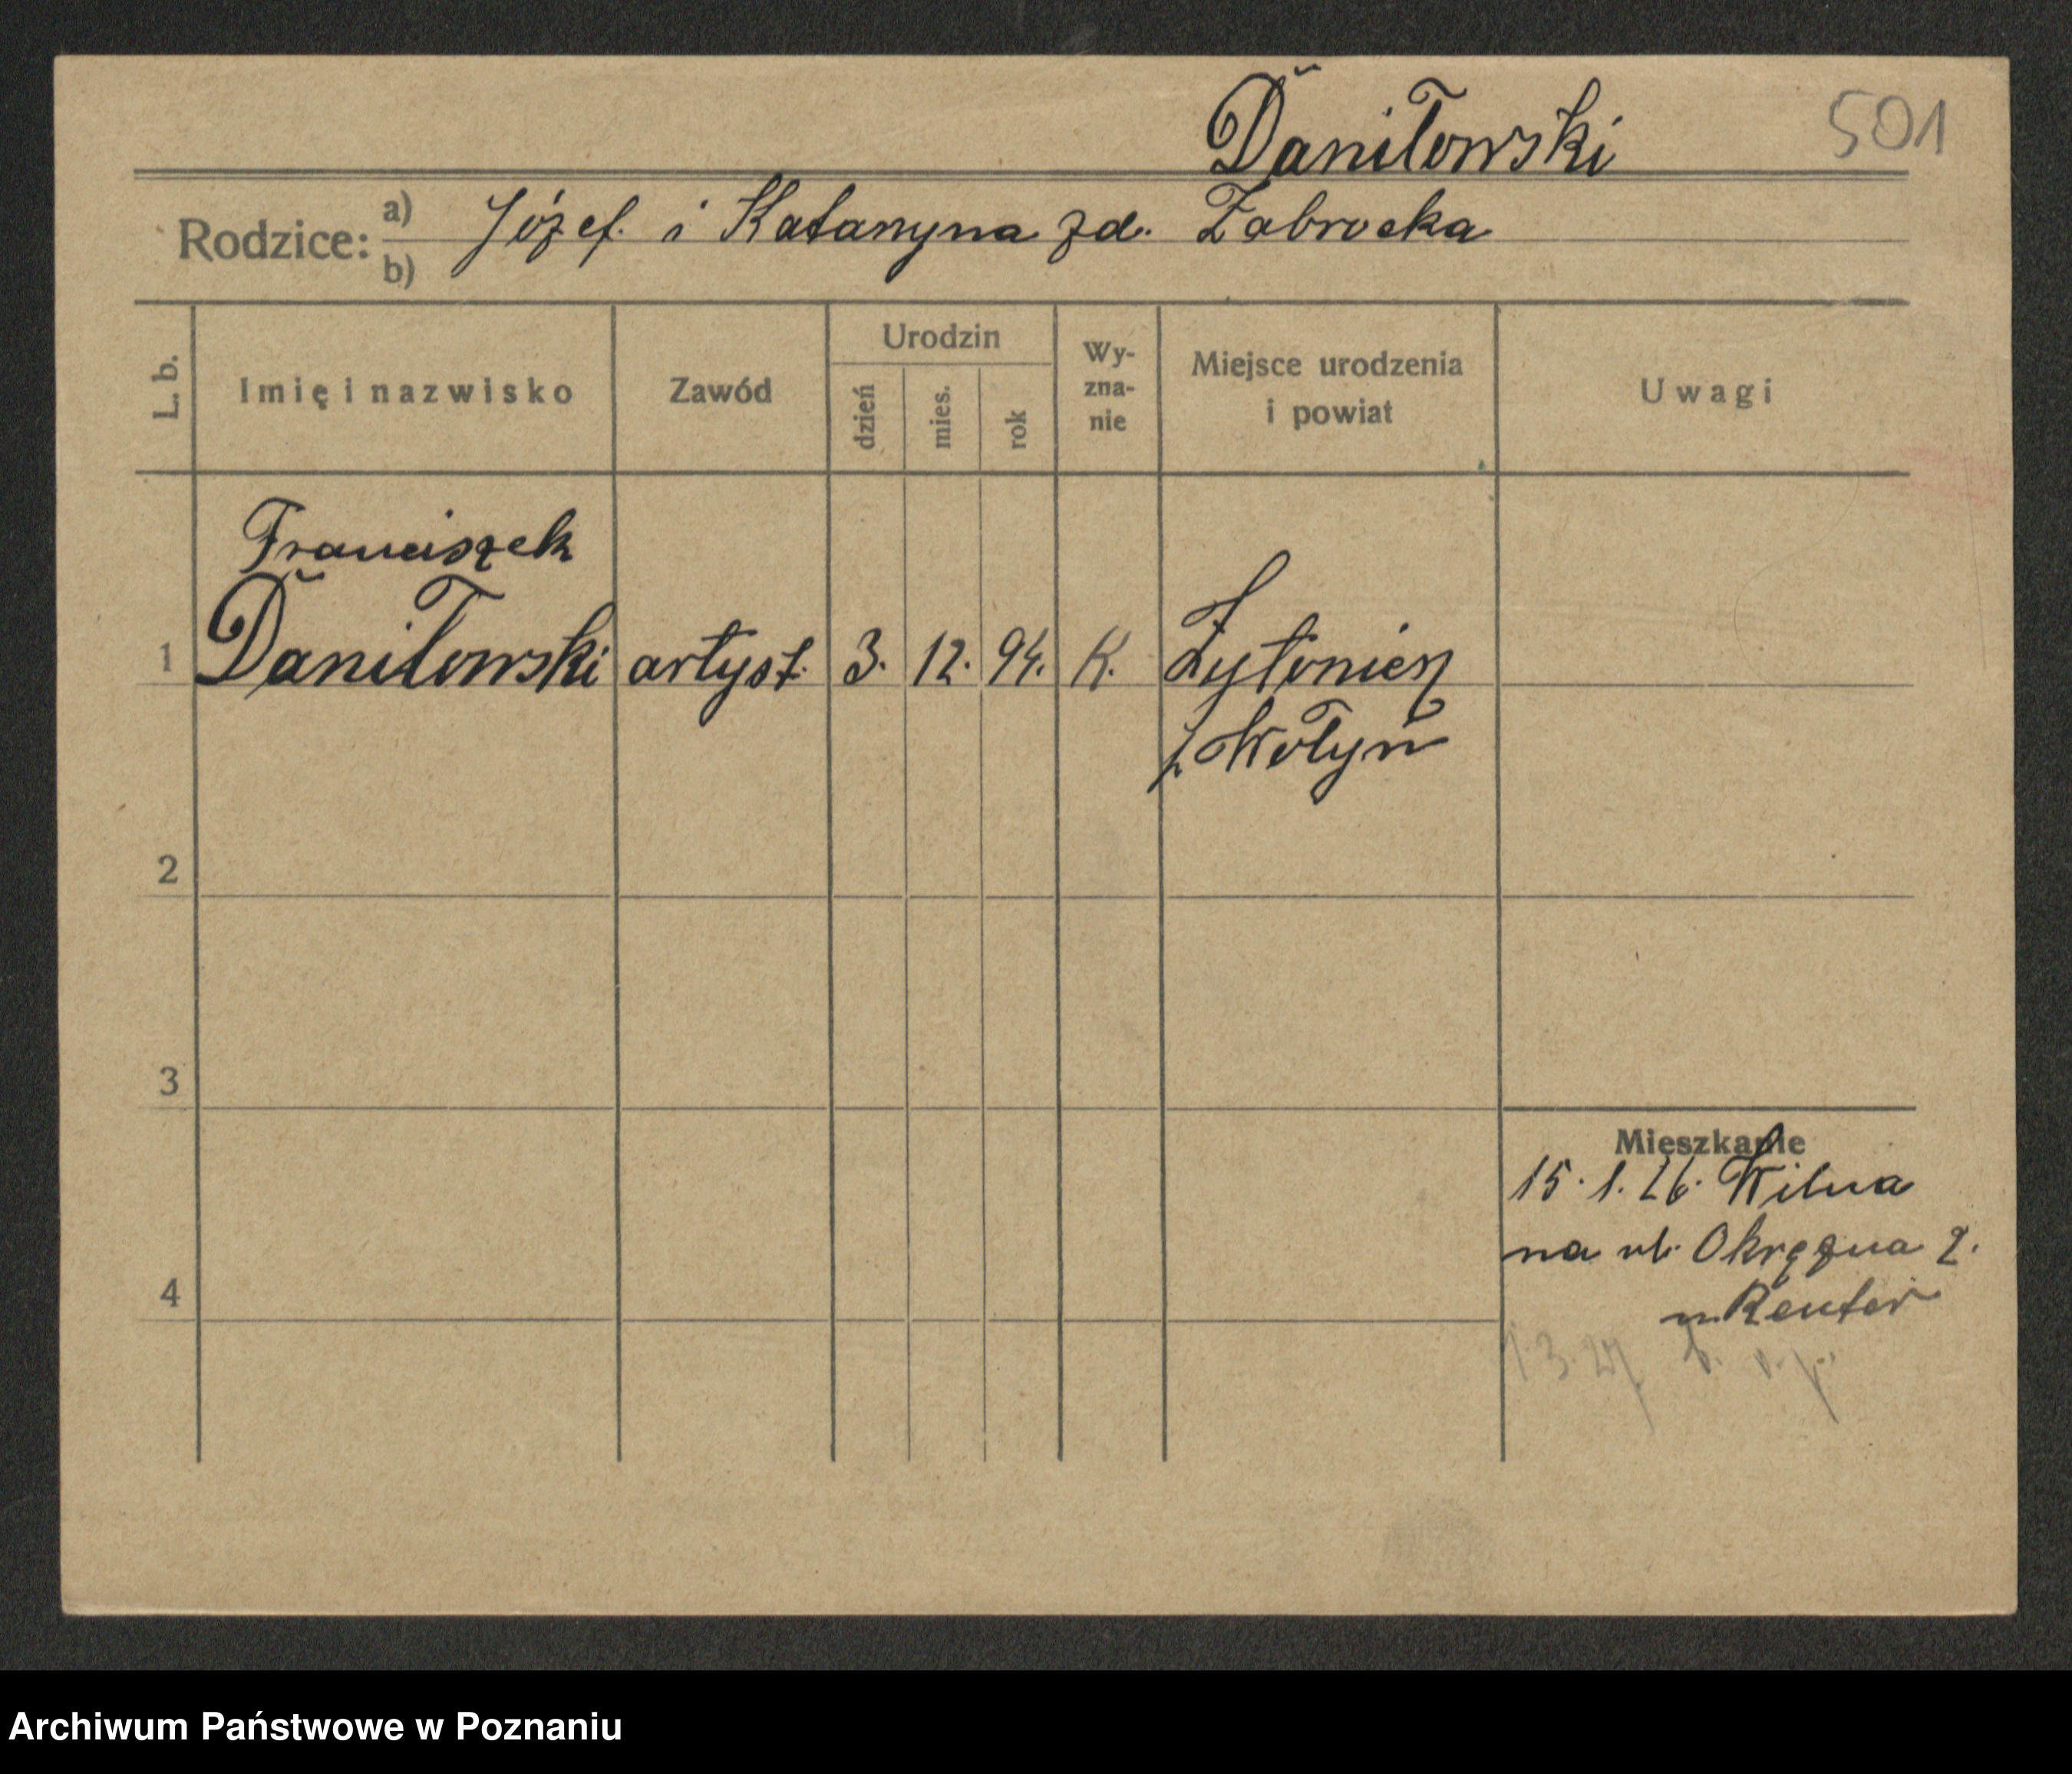 Daniłowski 501
Rodzice: a) b) Józef. i Katarzyna zd. Zabrocka
L. b. Imię i nazwisko Zawód Urodzin dzień mies. rok Wy-zna-nie Miejsce urodzenia i powiat Uwagi
Franciszek
1 Daniłowski artyst. 3. 12. 94. K. Żytomierz
p. Wołyń
2
3
Mieszkanie
15. 1. 26. Wilna
na ul. Okrężna 2.
4
u Reuter
1 3. 27
Archiwum Państwowe w Poznaniu